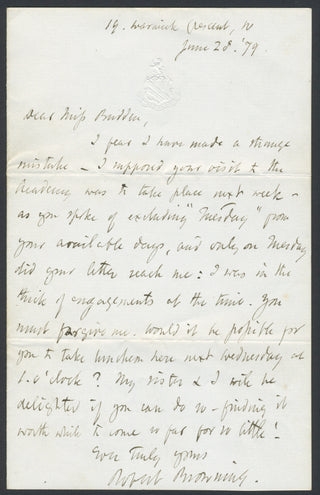 19. Warwick Crescent, W
June 28. '79.
Dear Miss Budden,
I fear I have made a strange
mistake – I supposed your visit to the
Academy was to take place next week –
as you spoke of excluding "Tuesday" from
your available days, and only on Tuesday
did your letter reach me: I was in the
thick of engagements at the time. You
must forgive me. Would it be possible for
you to take luncheon here next Wednesday at
1. o'clock? My sister & I will be
delighted if you can do so – finding it
worth while to come so far for so little!
Ever truly yours
Robert Browning.